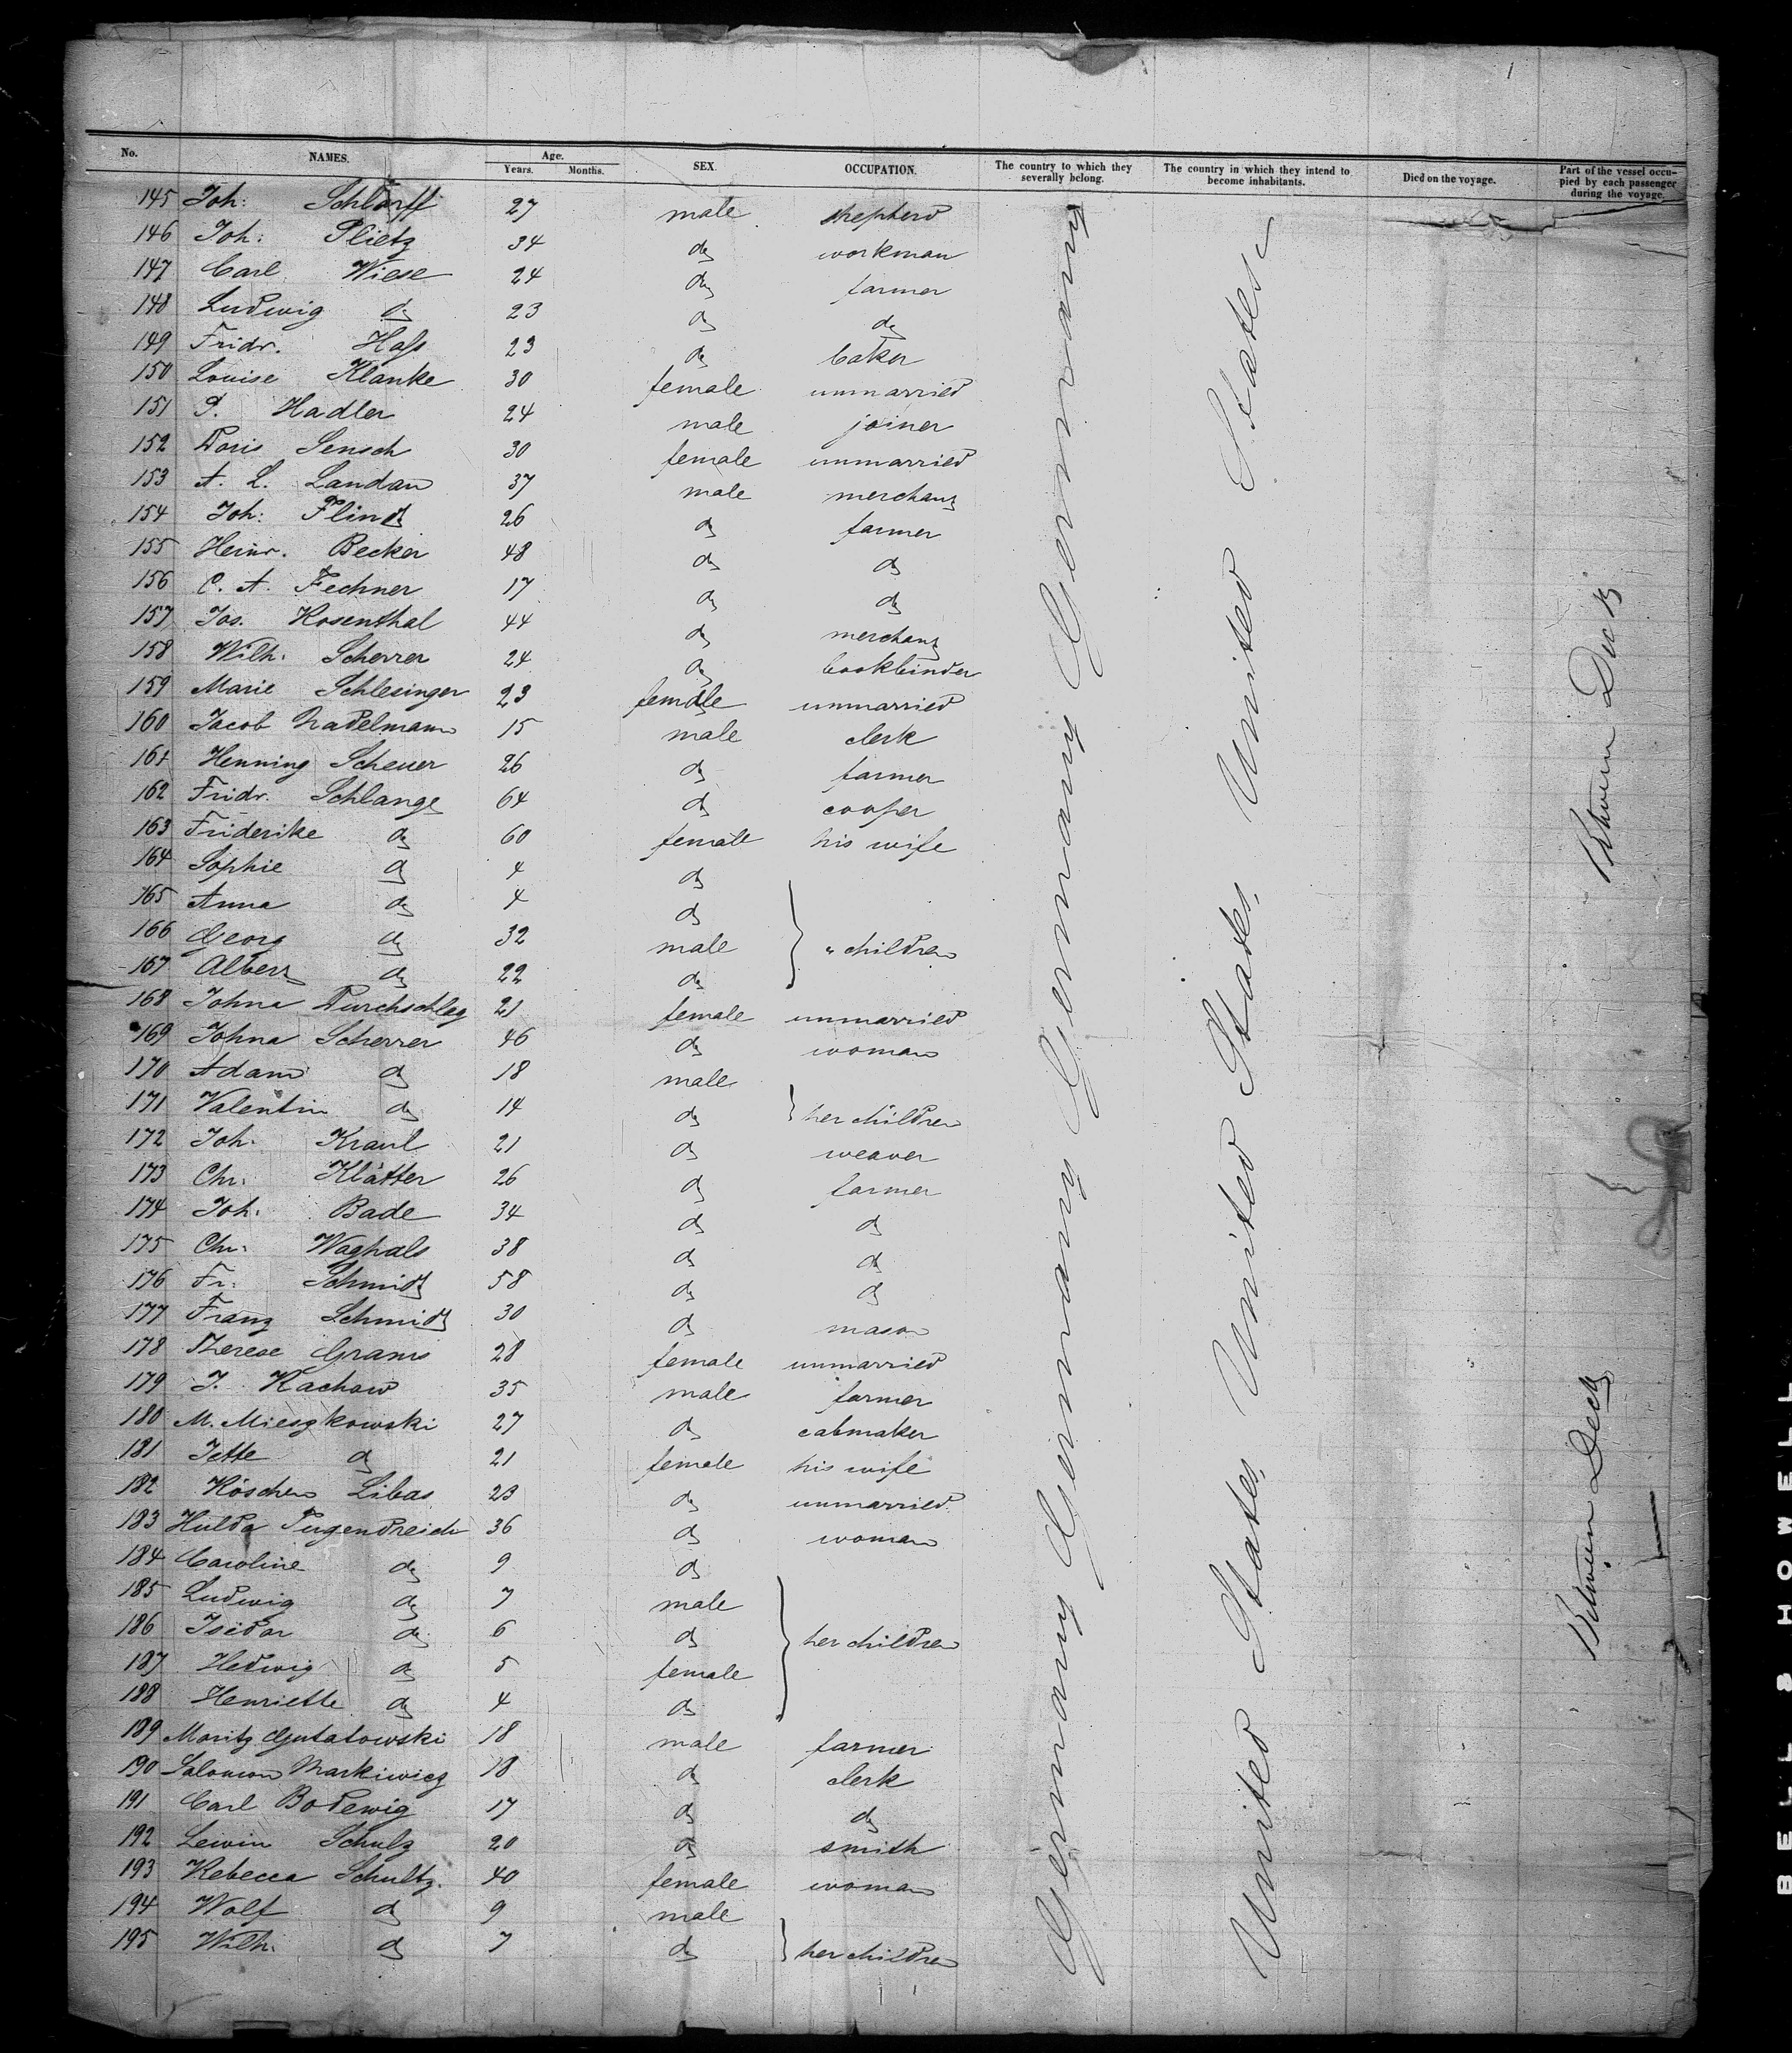 No. NAMES. Age. Years. Months. SEX. OCCUPATION. The country to which they severally belong. The country in which they intend to become inhabitants. Died on the voyage. Part of the vessel occupied by each passenger during the voyage.
145 Joh: Schlorff 27 male shepherd
146 Joh: Plietz 34 do workman
147 Carl Wiese 24 do farmer
148 Ludwig do 23 do do
149 Fridr. Hass 23 do baker
150 Louise Klanke 30 female unmarried
151 P. Hadler 24 male joiner
152 Doris Sensch 30 female unmarried
153 A. L. Landau 37 male merchant
154 Joh: Flindt 26 do farmer
155 Heinr. Becker 48 do do
156 C. A. Fechner 17 do do
157 Jos. Rosenthal 44 do merchant
158 Wilh. Scherrer 24 do bookbinder
159 Marie Schlesinger 23 female unmarried
160 Jacob Nadelmann 15 male clerk
161 Henning Scheuer 26 do farmer
162 Fridr. Schlange 64 do cooper
163 Friderike do 60 female his wife
164 Sophie do 4 do
165 Anna do 4 do
166 Georg do 32 male " children
167 Albert do 22 do
168 Johna Durchschlag 21 female unmarried
169 Johna Scherrer 46 do woman
170 Adam do 18 male
171 Valentin do 14 do her children
172 Joh: Kraul 21 do weaver
173 Chr: Klätter 26 do farmer
174 Joh: Bade 34 do do
175 Chr: Waghals 38 do do
176 Fr: Schmidt 58 do do
177 Franz Schmidt 30 do mason
178 Therese Grams 28 female unmarried
179 J. Kachow 35 male farmer
180 M. Mieszkowski 27 do cabmaker
181 Jette do 21 female his wife
182 Röschen Libas 23 do unmarried
183 Hulda Tugendreich 36 do woman
184 Caroline do 9 do
185 Ludwig do 7 male
186 Isidor do 6 do her children
187 Hedwig do 5 female
188 Henriette do 4 do
189 Moritz Gutatowski 18 male farmer
190 Salomon Markiwicz 18 do clerk
191 Carl Bodewig 17 do do
192 Lewin Schulz 20 do smith
193 Rebecca Schultz. 40 female woman
194 Wolf do 9 male
195 Wilh. do 7 do her children
Germany Germany Germany Germany
United States United States United States
Between Deck
Between Deck
BELL & HOWELL